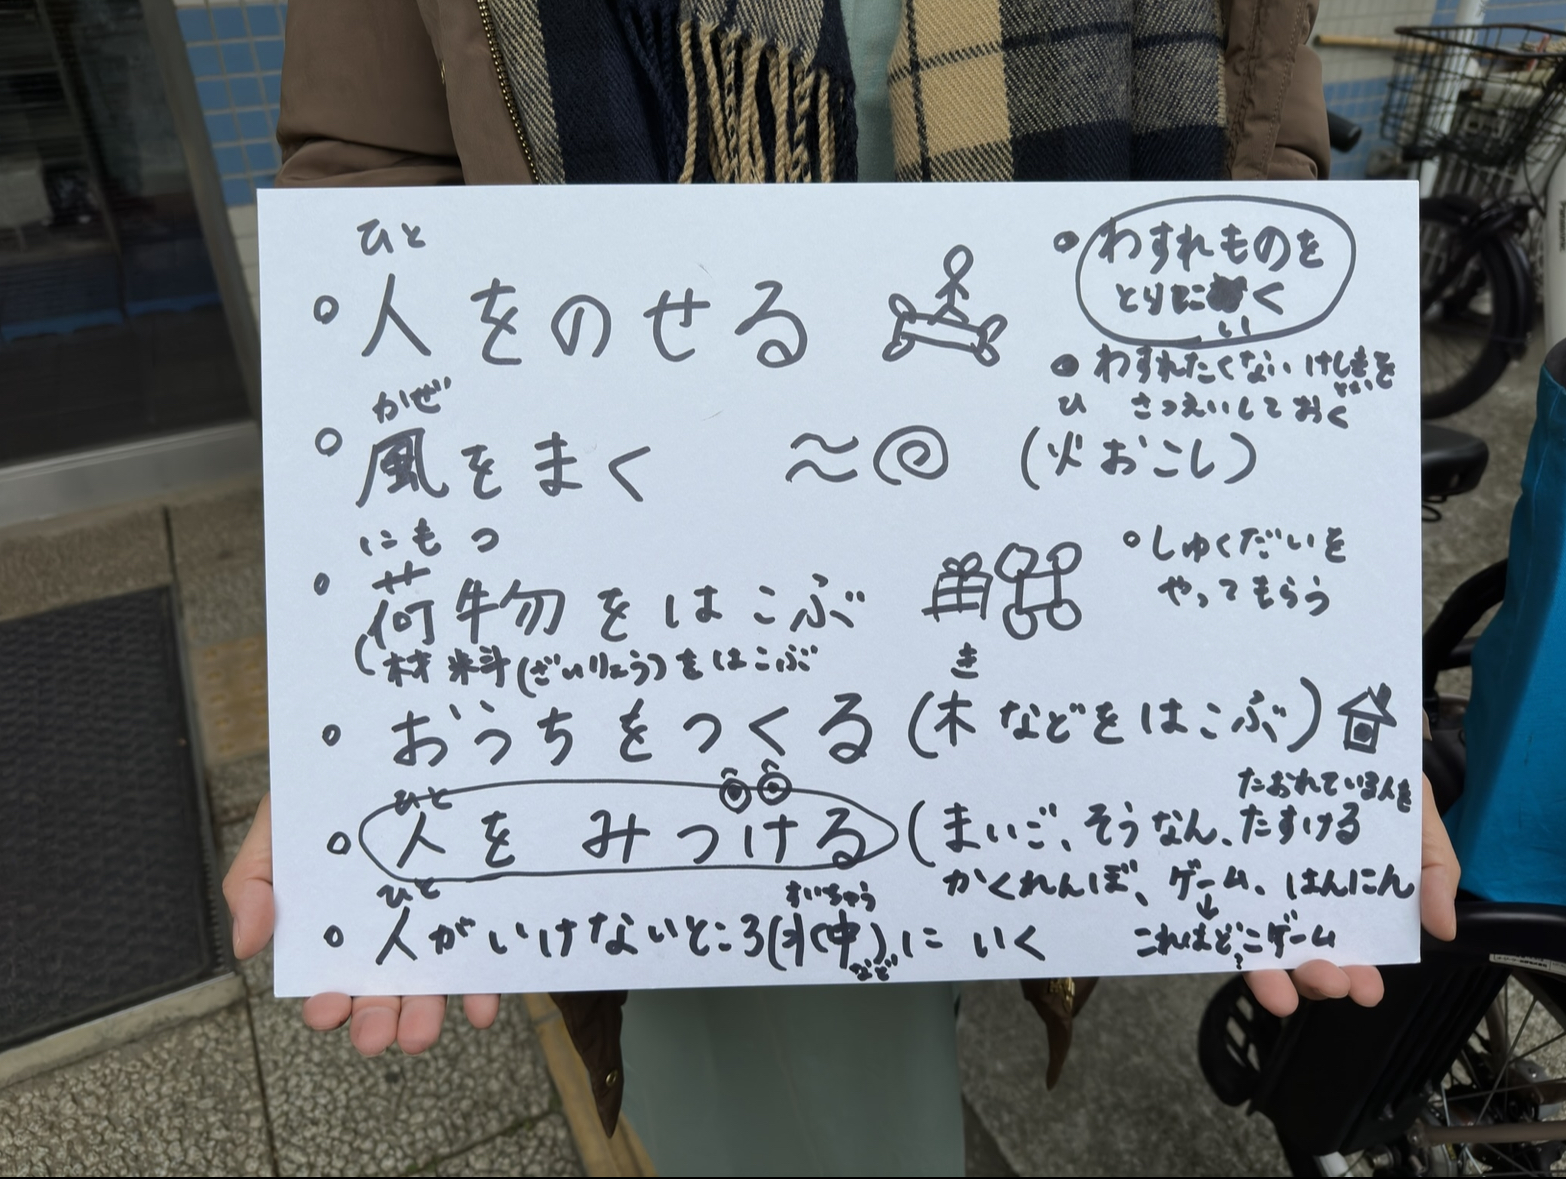 ひと
○人をのせる
●わすれものを
とりに く
い
●わすれたくない けしきを
さつえいしておく
かぜ
○風をまく
ひ
(火おこし)
にもつ
○荷物をはこぶ
(材料(ざいりょう)をはこぶ
○しゅくだいを
やってもらう
き
○おうちをつくる(木などをはこぶ)
ひと
○人をみつける
たおれている人を
(まいご、そうなん、たすける
かくれんぼ、ゲーム、はんにん
↓
これはどこゲーム
?
ひと
すいちゅう
○人がいけないところ(水中)にいく
など